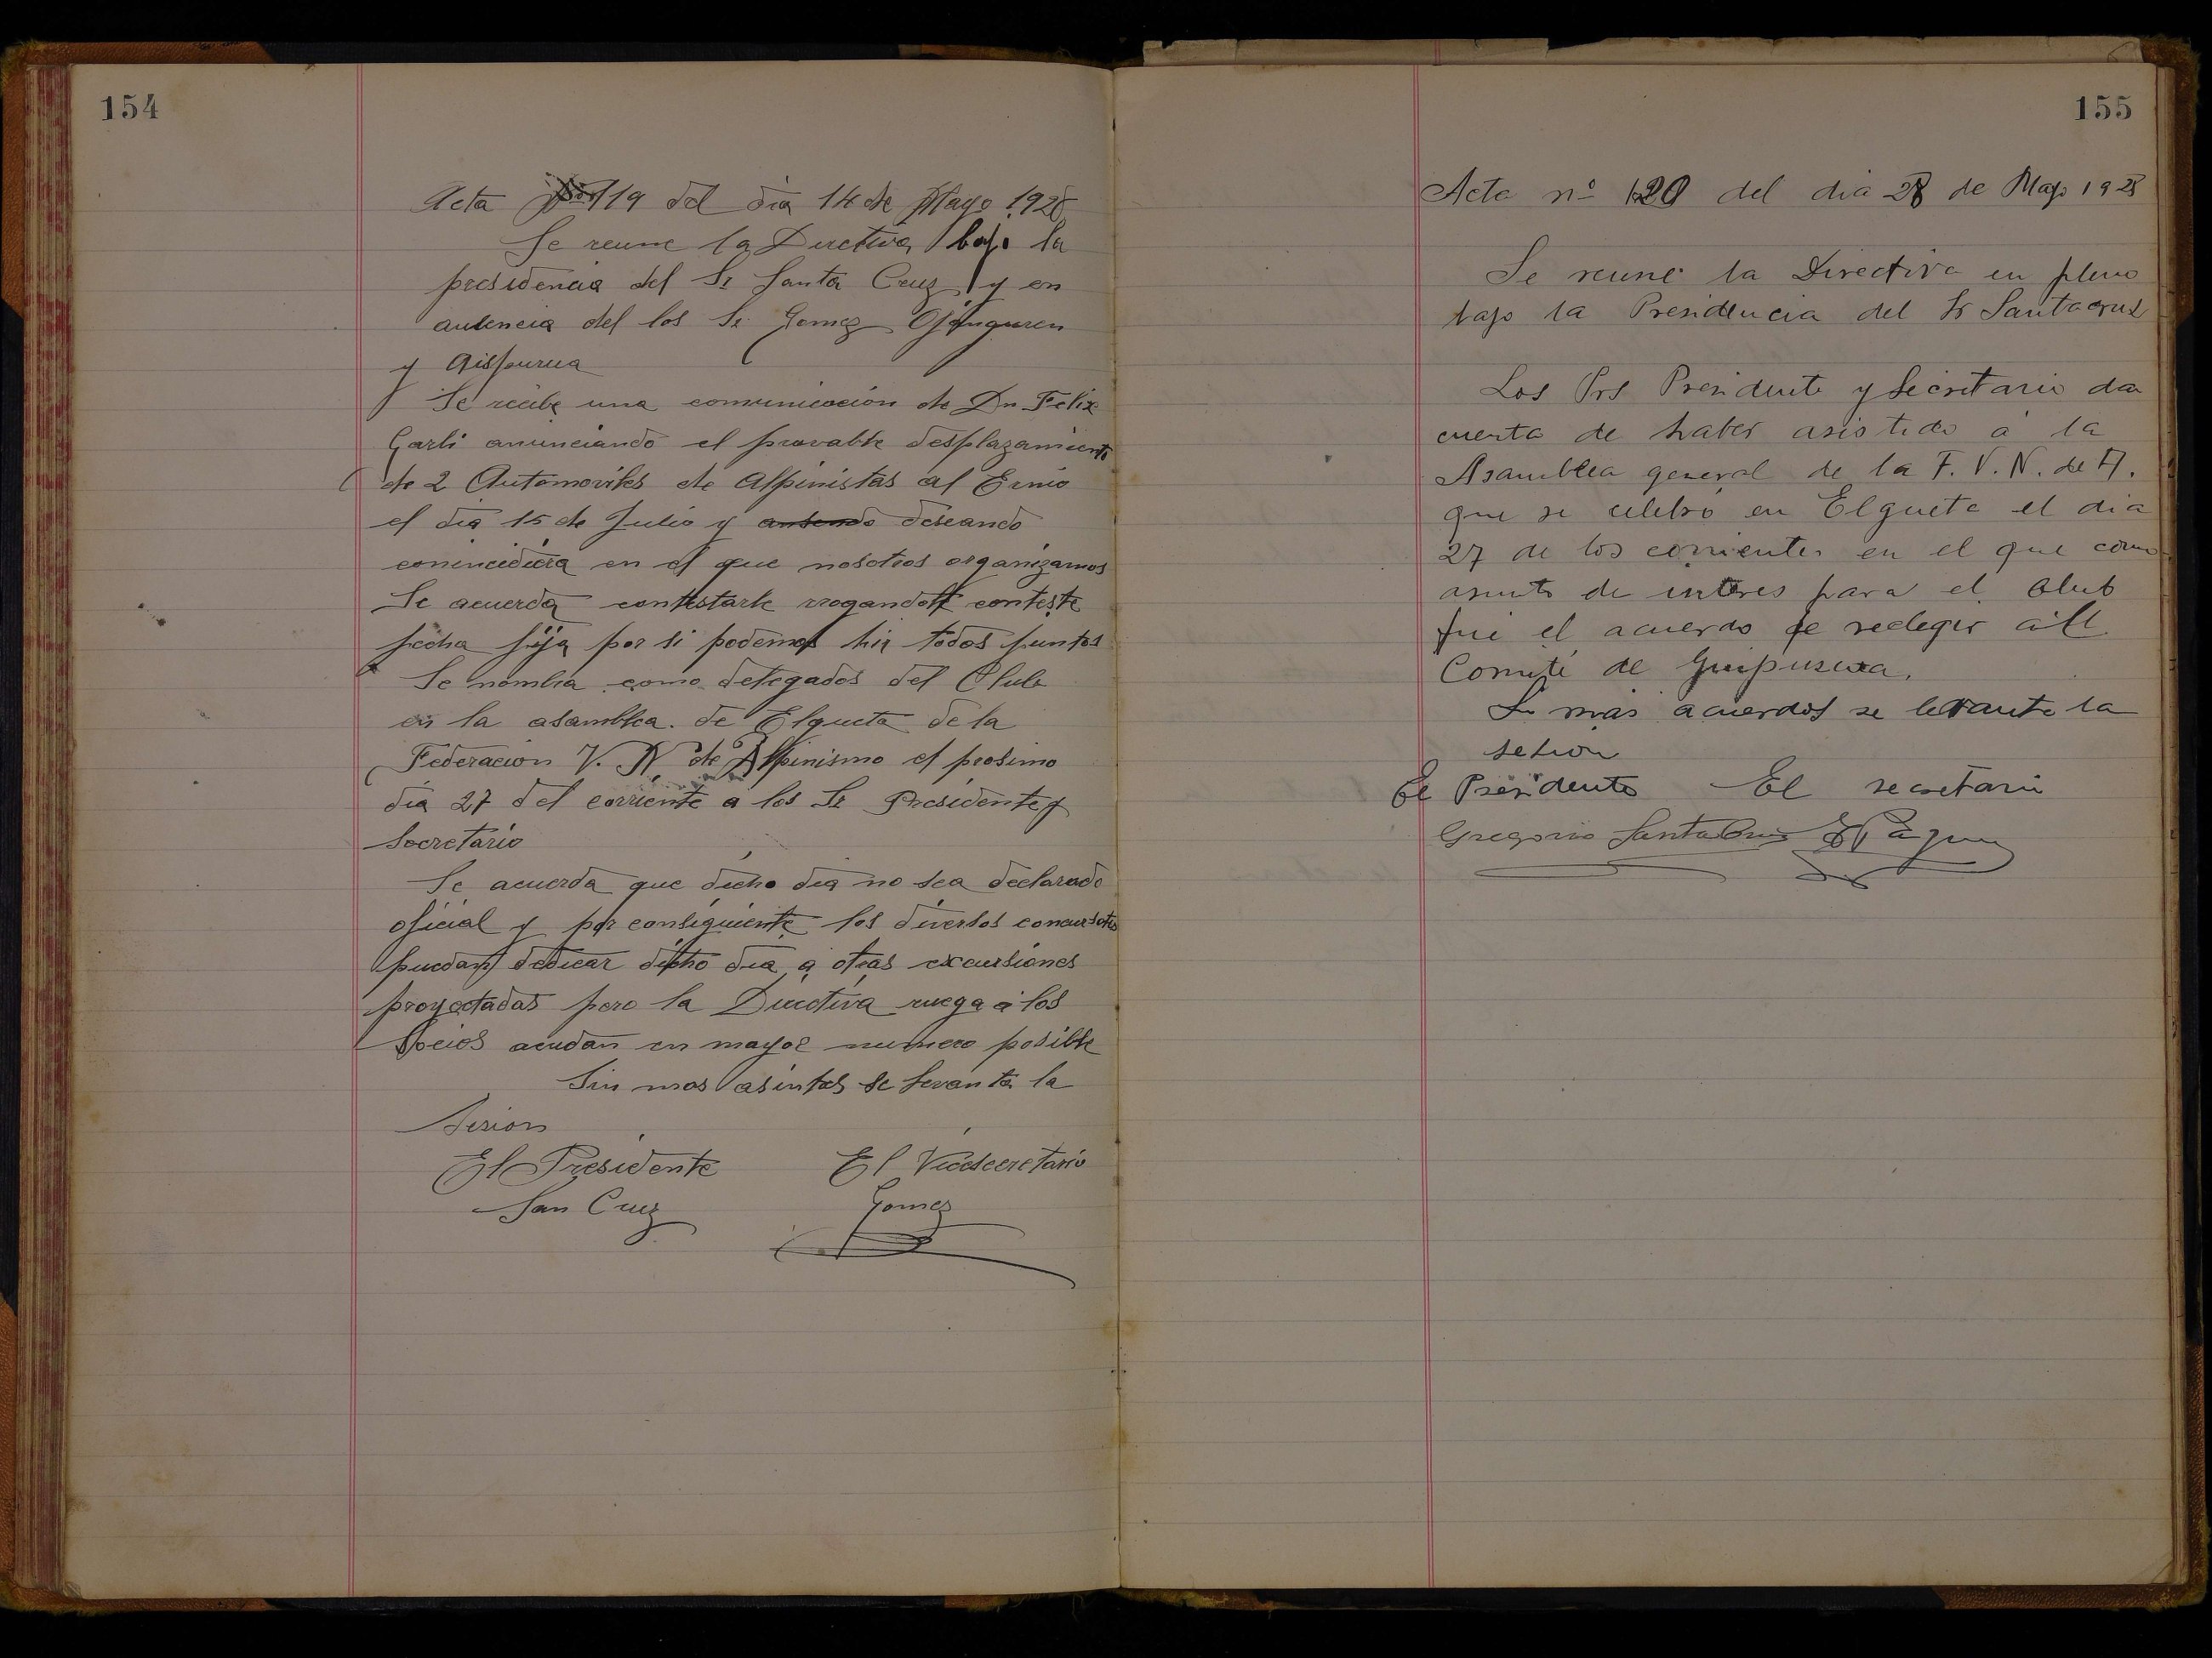 154
Acta 119 del dia 14 de Mayo 1928
Se reune la Directiva bajo la
presidencia del Sr Santa Cruz y en
ausencia del los Sr Gomez Ojanguren
y Aispurua
Se recibe una comunicación de Dn Felix
Garli anunciando el provable desplazamiento
de 2 Automoviles de Alpinistas al Ernio
el dia 15 de Julio y deseando
conincidiera en el que nosotros organizamos
Se acuerda contestarle rrogandole conteste
fecha fija por si podemos hir todos juntos
Se nombra como delegados del Club
en la asamblea de Elgueta de la
Federacion V. N. de Alpinismo el prosimo
dia 27 del corriente a los Sr Presidente y
Secretario
Se acuerda que dicho dia no sea declarado
oficial y por consiguiente los diversos
puedan dedicar dicho dia a otras excursiones
proyectadas pero la Directiva ruega a los
Socios acudan en mayor numero posible
Sin mas asuntos se levanta la
Sesion
El Presidente El Vicesecretario
San Cruz Gomez
155
Acta nº 120 del dia 28 de Mayo 1928
Se reune la Directiva en pleno
bajo la Presidencia del Sr Santacruz
Los Srs Presidente y Secretario dan
cuenta de haber asistido a la
Asamblea general de la F. V. N. de A.
que se celebró en Elgueta el dia
27 de los corrientes en el que como
asunto de interes para el Club
fué el acuerdo de reelegir al
Comité de Guipuscoa.
Sin mas acuerdos se levanta la
sesion
El Presidente El secretario
Gregorio Santa Cruz